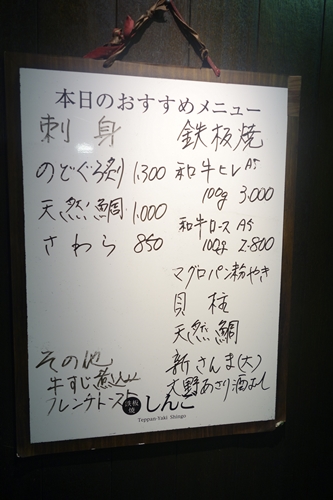 本日のおすすめメニュー
刺身
のどぐろ炙り 1,300
天然鯛 1,000
さわら 850
鉄板焼
和牛ヒレA5
100g 3,000
和牛ロースA5
100g 2,800
マグロパン粉やき
貝柱
天然鯛
新さんま(大)
大野あさり酒むし
その他
牛すじ煮込み
フレンチトースト
鉄板焼 しんご
Teppan-Yaki Shingo